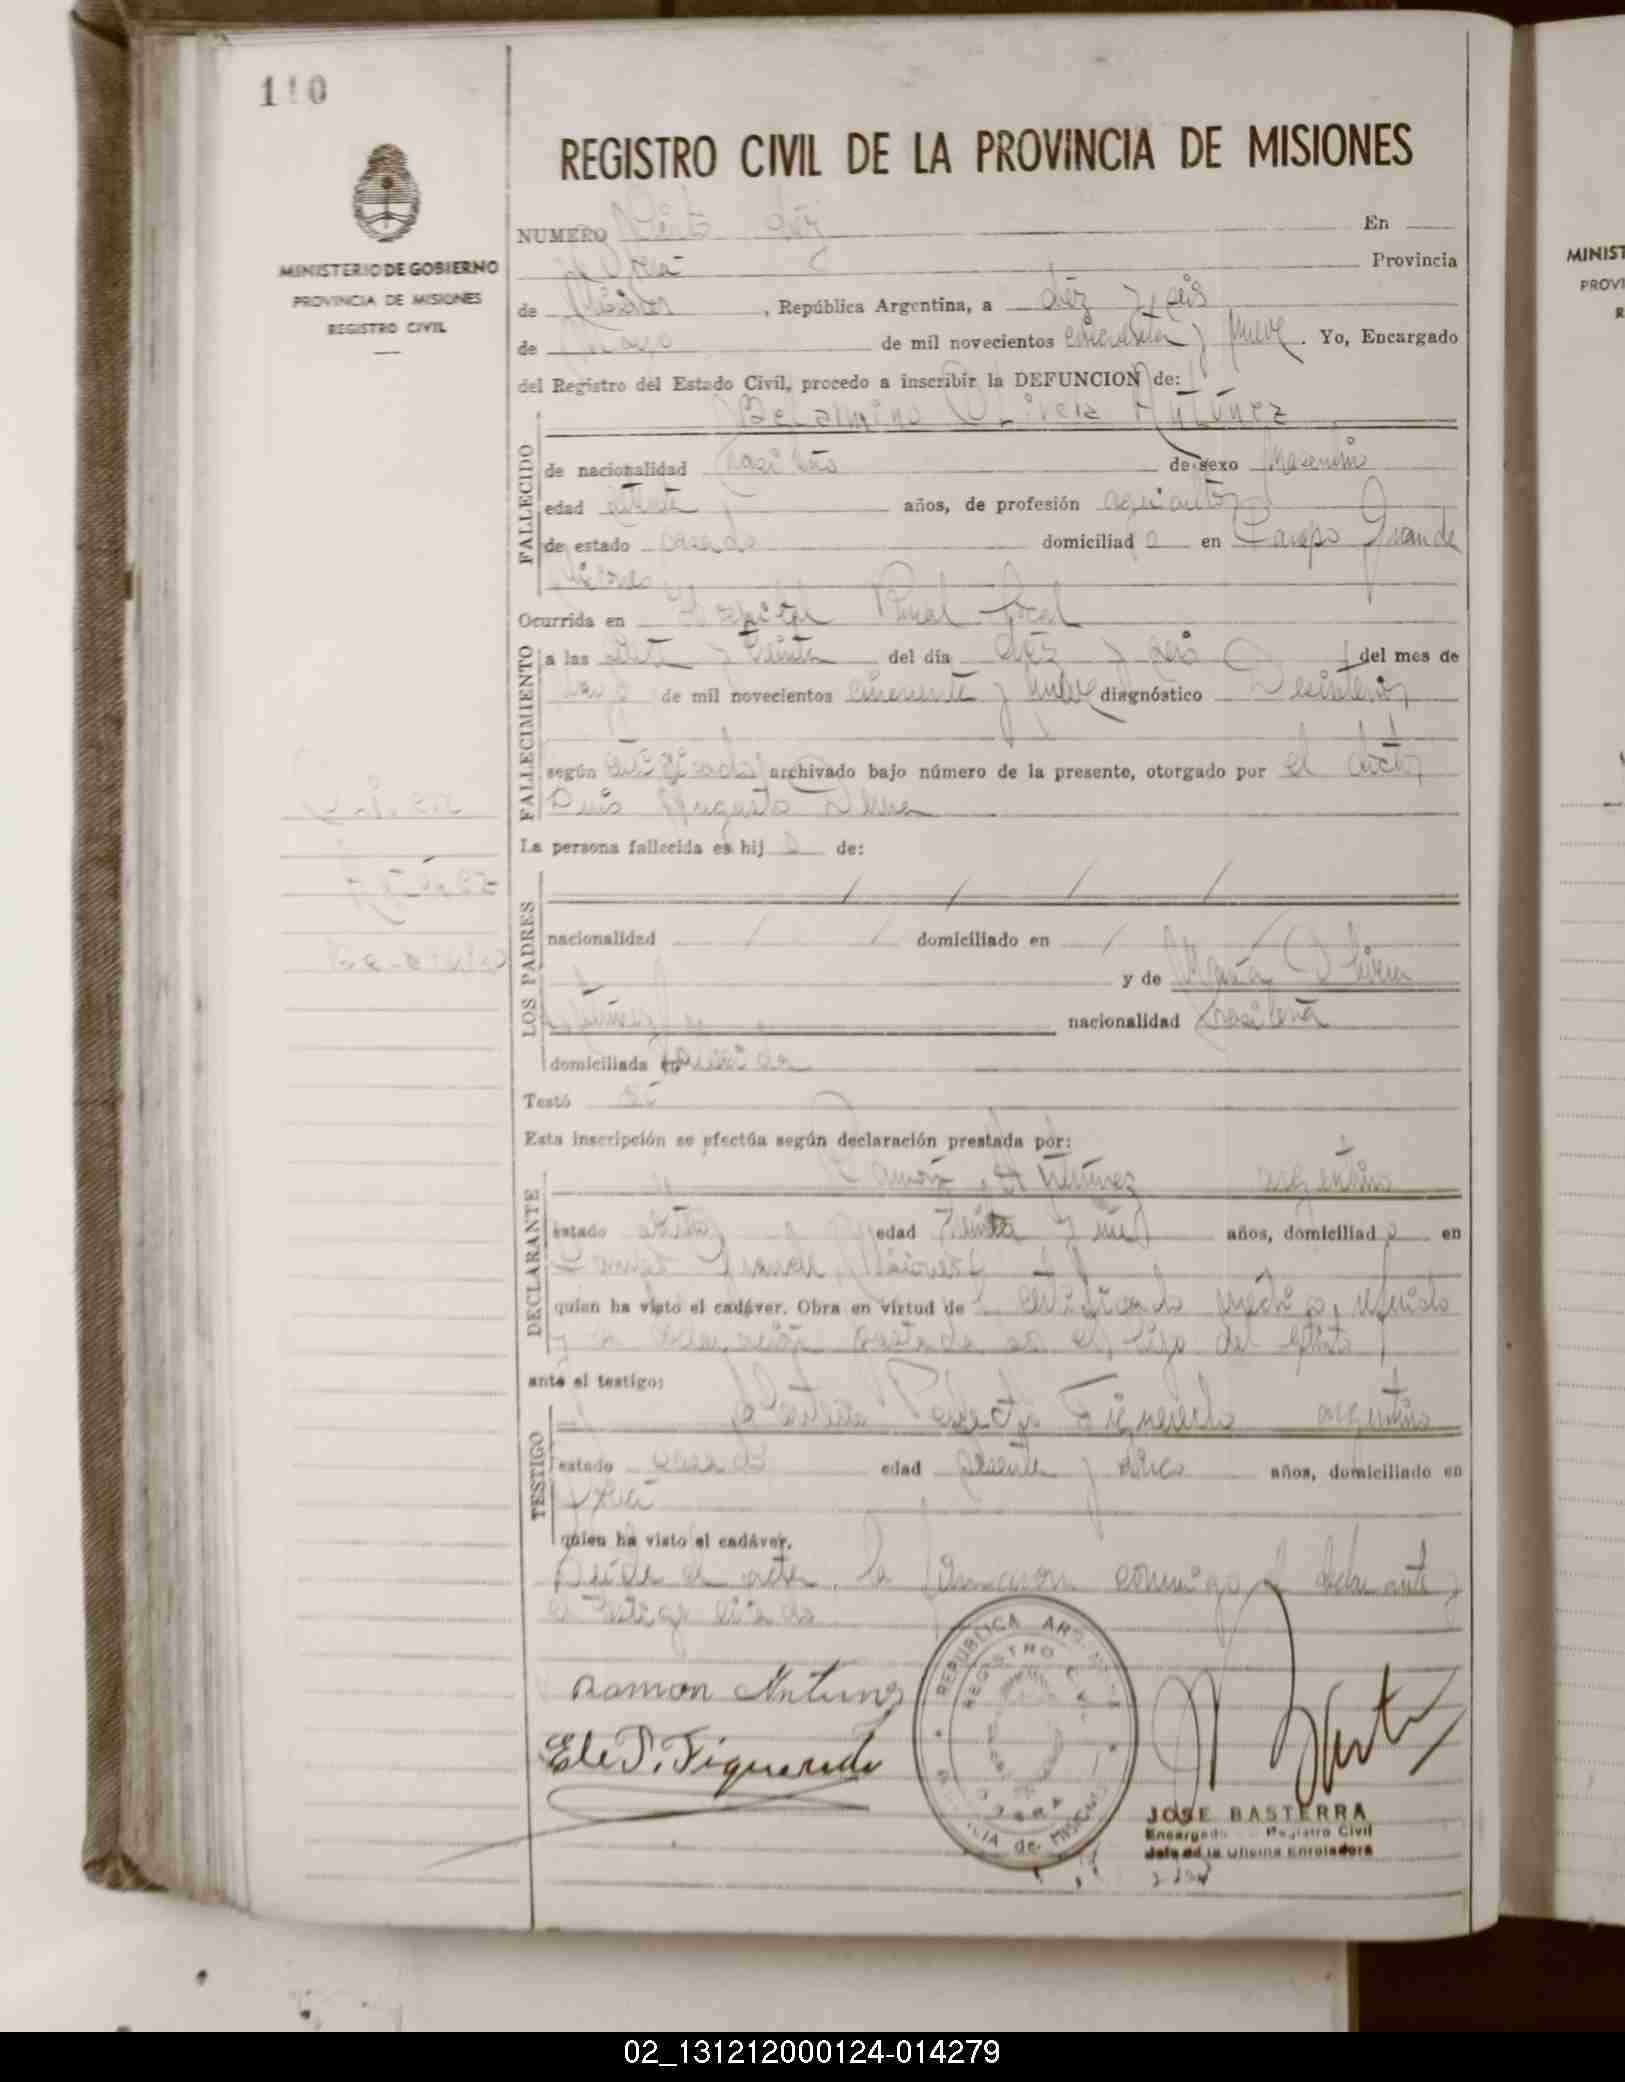 110
REGISTRO CIVIL DE LA PROVINCIA DE MISIONES
MINISTERIO DE GOBIERNO
PROVINCIA DE MISIONES
REGISTRO CIVIL
NUMERO Ciento diez En
Oberá Provincia
de Misiones, República Argentina, a diez y seis
de Mayo de mil novecientos cincuenta y nueve. Yo, Encargado
del Registro del Estado Civil, procedo a inscribir la DEFUNCION de:
Belarmino Olivera Antúnez
FALLECIDO
de nacionalidad brasileño de sexo masculino
edad años, de profesión agricultor
de estado casado domiciliado en Campo Grande
Misiones
Ocurrida en Hospital Rural local
FALLECIMIENTO
a las siete y treinta del día diez y seis del mes de
Mayo de mil novecientos cincuenta y nueve diagnóstico
según certificado archivado bajo número de la presente, otorgado por el doctor
Luis Augusto
La persona fallecida es hijo de:
LOS PADRES
nacionalidad domiciliado en
y de María Olivera
Antúnez nacionalidad brasileña
domiciliada en fallecida
Testó
Esta inscripción se efectúa según declaración prestada por:
DECLARANTE
Ramón Antúnez argentino
estado soltero edad treinta y años, domiciliado en
Campo Grande, Misiones
quien ha visto el cadáver. Obra en virtud de certificado médico, referido
y la declaración prestada es el hijo del extinto
ante el testigo:
TESTIGO
Figueredo argentino
estado casado edad y cinco años, domiciliado en
Oberá
quien ha visto el cadáver.
Leída el acta, la firmaron conmigo el declarante y
el testigo citado
Ramon Antunez
Ele P. Figueredo
REPUBLICA ARGENTINA
REGISTRO CIVIL
OBERA
PROVINCIA de MISIONES
JOSE BASTERRA
Encargado Registro Civil
Jefe de la Oficina Enroladora
MINIST
PROVI
R
02_131212000124-014279